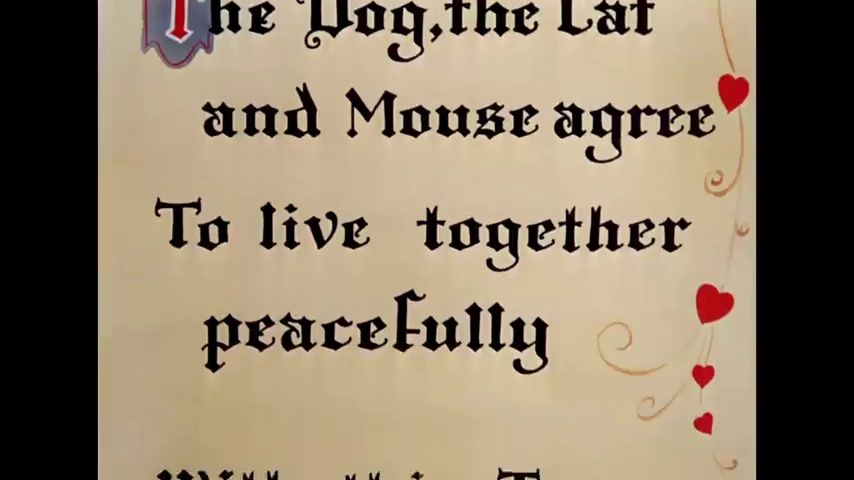 The Dog, the Cat
and Mouse agree
To live together
peacefully